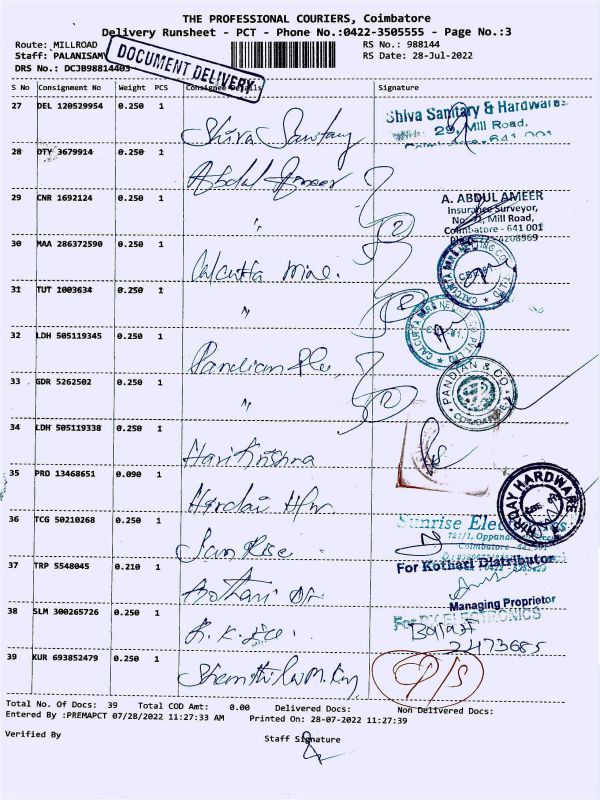 THE PROFESSIONAL COURIERS, Coimbatore
Delivery Runsheet - PCT - Phone No.:0422-3505555 - Page No.:3
Route: MILLROAD RS No.: 988144
Staff: PALANISAMY RS Date: 28-Jul-2022
DRS No.: DCJB98814403
DOCUMENT DELIVERY
S No Consignment No Weight PCS Consignee Details Signature
27 DEL 120529954 0.250 1 Shiva Sanitary
Shiva Sanitary & Hardwares
29, Mill Road,
28 DTY 3679914 0.250 1 Abdul Ameer
29 CNR 1692124 0.250 1 " 2
A. ABDUL AMEER
Insurance Surveyor,
Mill Road,
Coimbatore - 641 001
30 MAA 286372590 0.250 1 Calcutta
31 TUT 1003634 0.250 1 " 2
32 LDH 505119345 0.250 1 Pandian
33 GDR 5262502 0.250 1 " 2
PANDIAN & CO
COIMBATORE
34 LDH 505119338 0.250 1 Hari Krishna
35 PRO 13468651 0.090 1
HIRDAY HARDWARE
36 TCG 50210268 0.250 1 Sun Rise
Sunrise
721/1, Oppanakara
Coimbatore - 641 001
37 TRP 5548045 0.210 1 Kothari
For Kothari Distributor
Managing Proprietor
38 SLM 300265726 0.250 1
ELECTRONICS
Balaji
2473685
39 KUR 693852479 0.250 1
O/S
Total No. Of Docs: 39 Total COD Amt: 0.00 Delivered Docs: Non Delivered Docs:
Entered By :PREMAPCT 07/28/2022 11:27:33 AM Printed On: 28-07-2022 11:27:39
Verified By Staff Signature